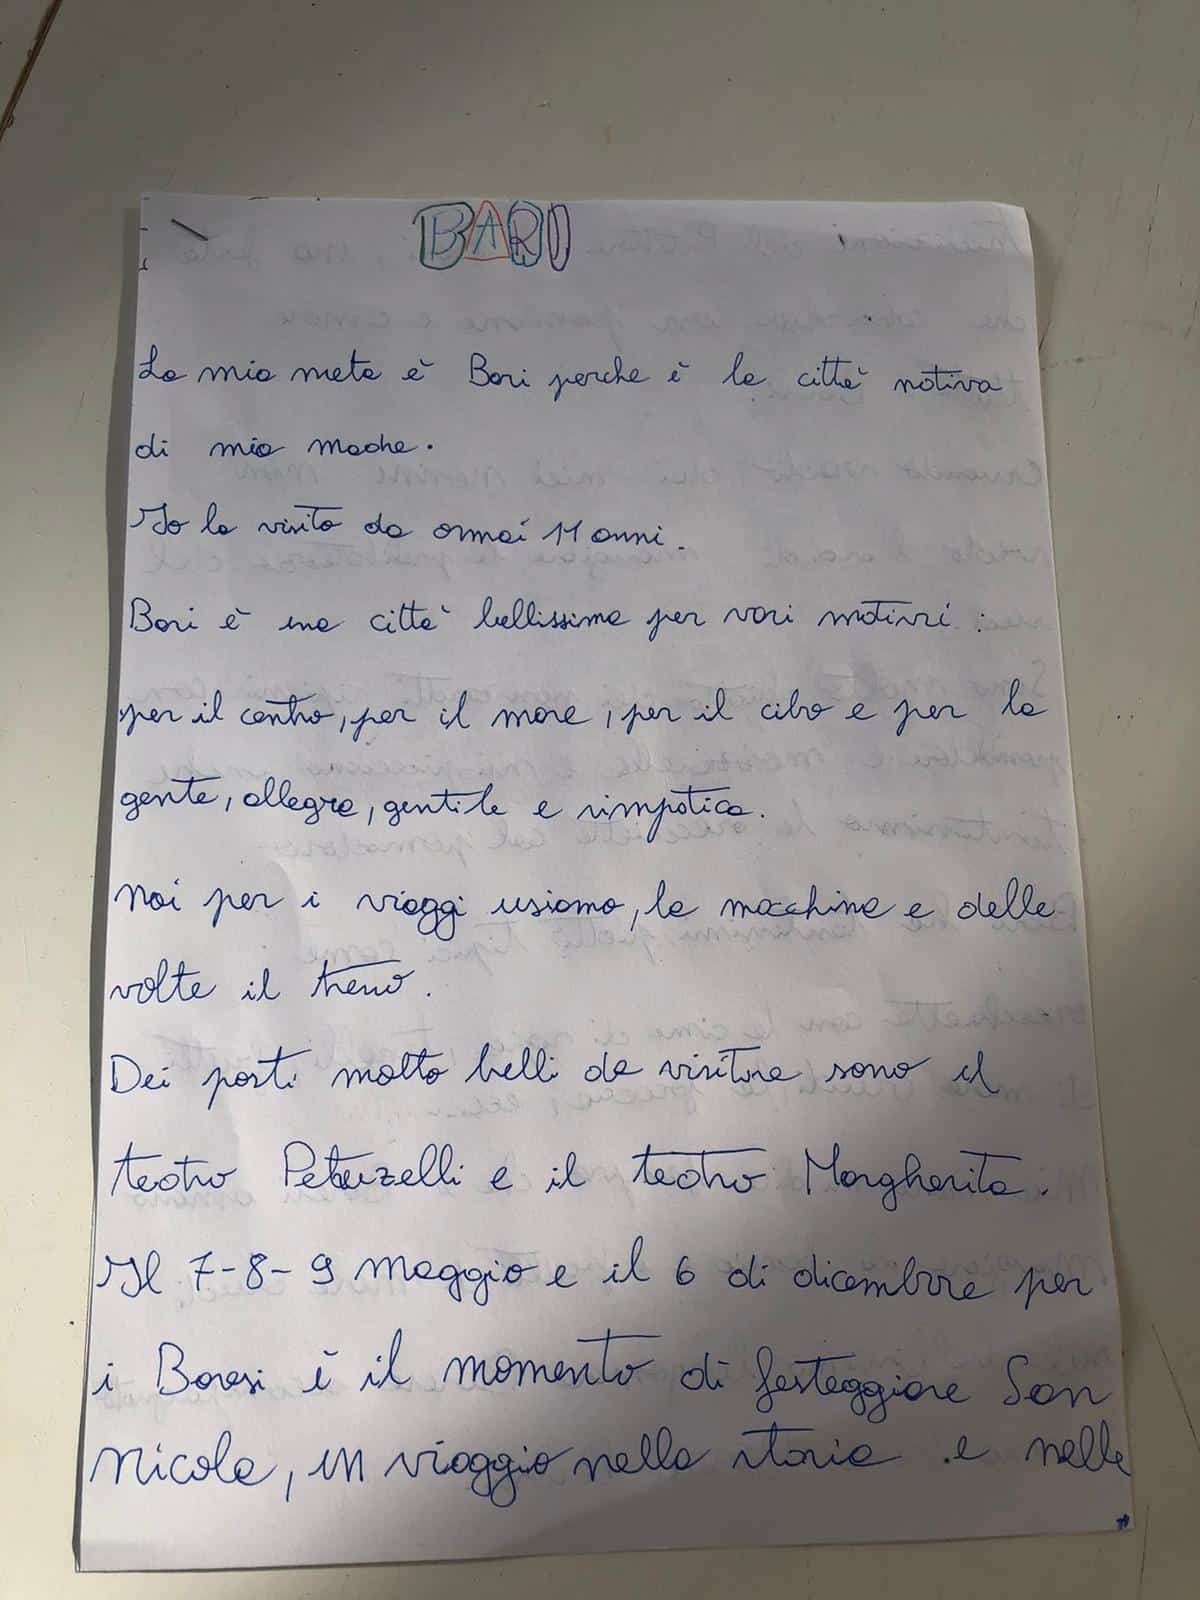 BARI
La mia meta è Bari perche è la città nativa
di mia madre.
Io la visito da ormai 11 anni.
Bari è una città bellissima per vari motivi:
per il centro, per il mare, per il cibo e per la
gente, allegra, gentile e simpatica.
Noi per i viaggi usiamo, la macchina e delle
volte il treno.
Dei posti molto belli da visitare sono il
teatro Petruzzelli e il teatro Margherita.
Il 7-8-9 Maggio e il 6 di dicembre per
i Baresi è il momento di festeggiare San
Nicola, un viaggio nella storia e nelle